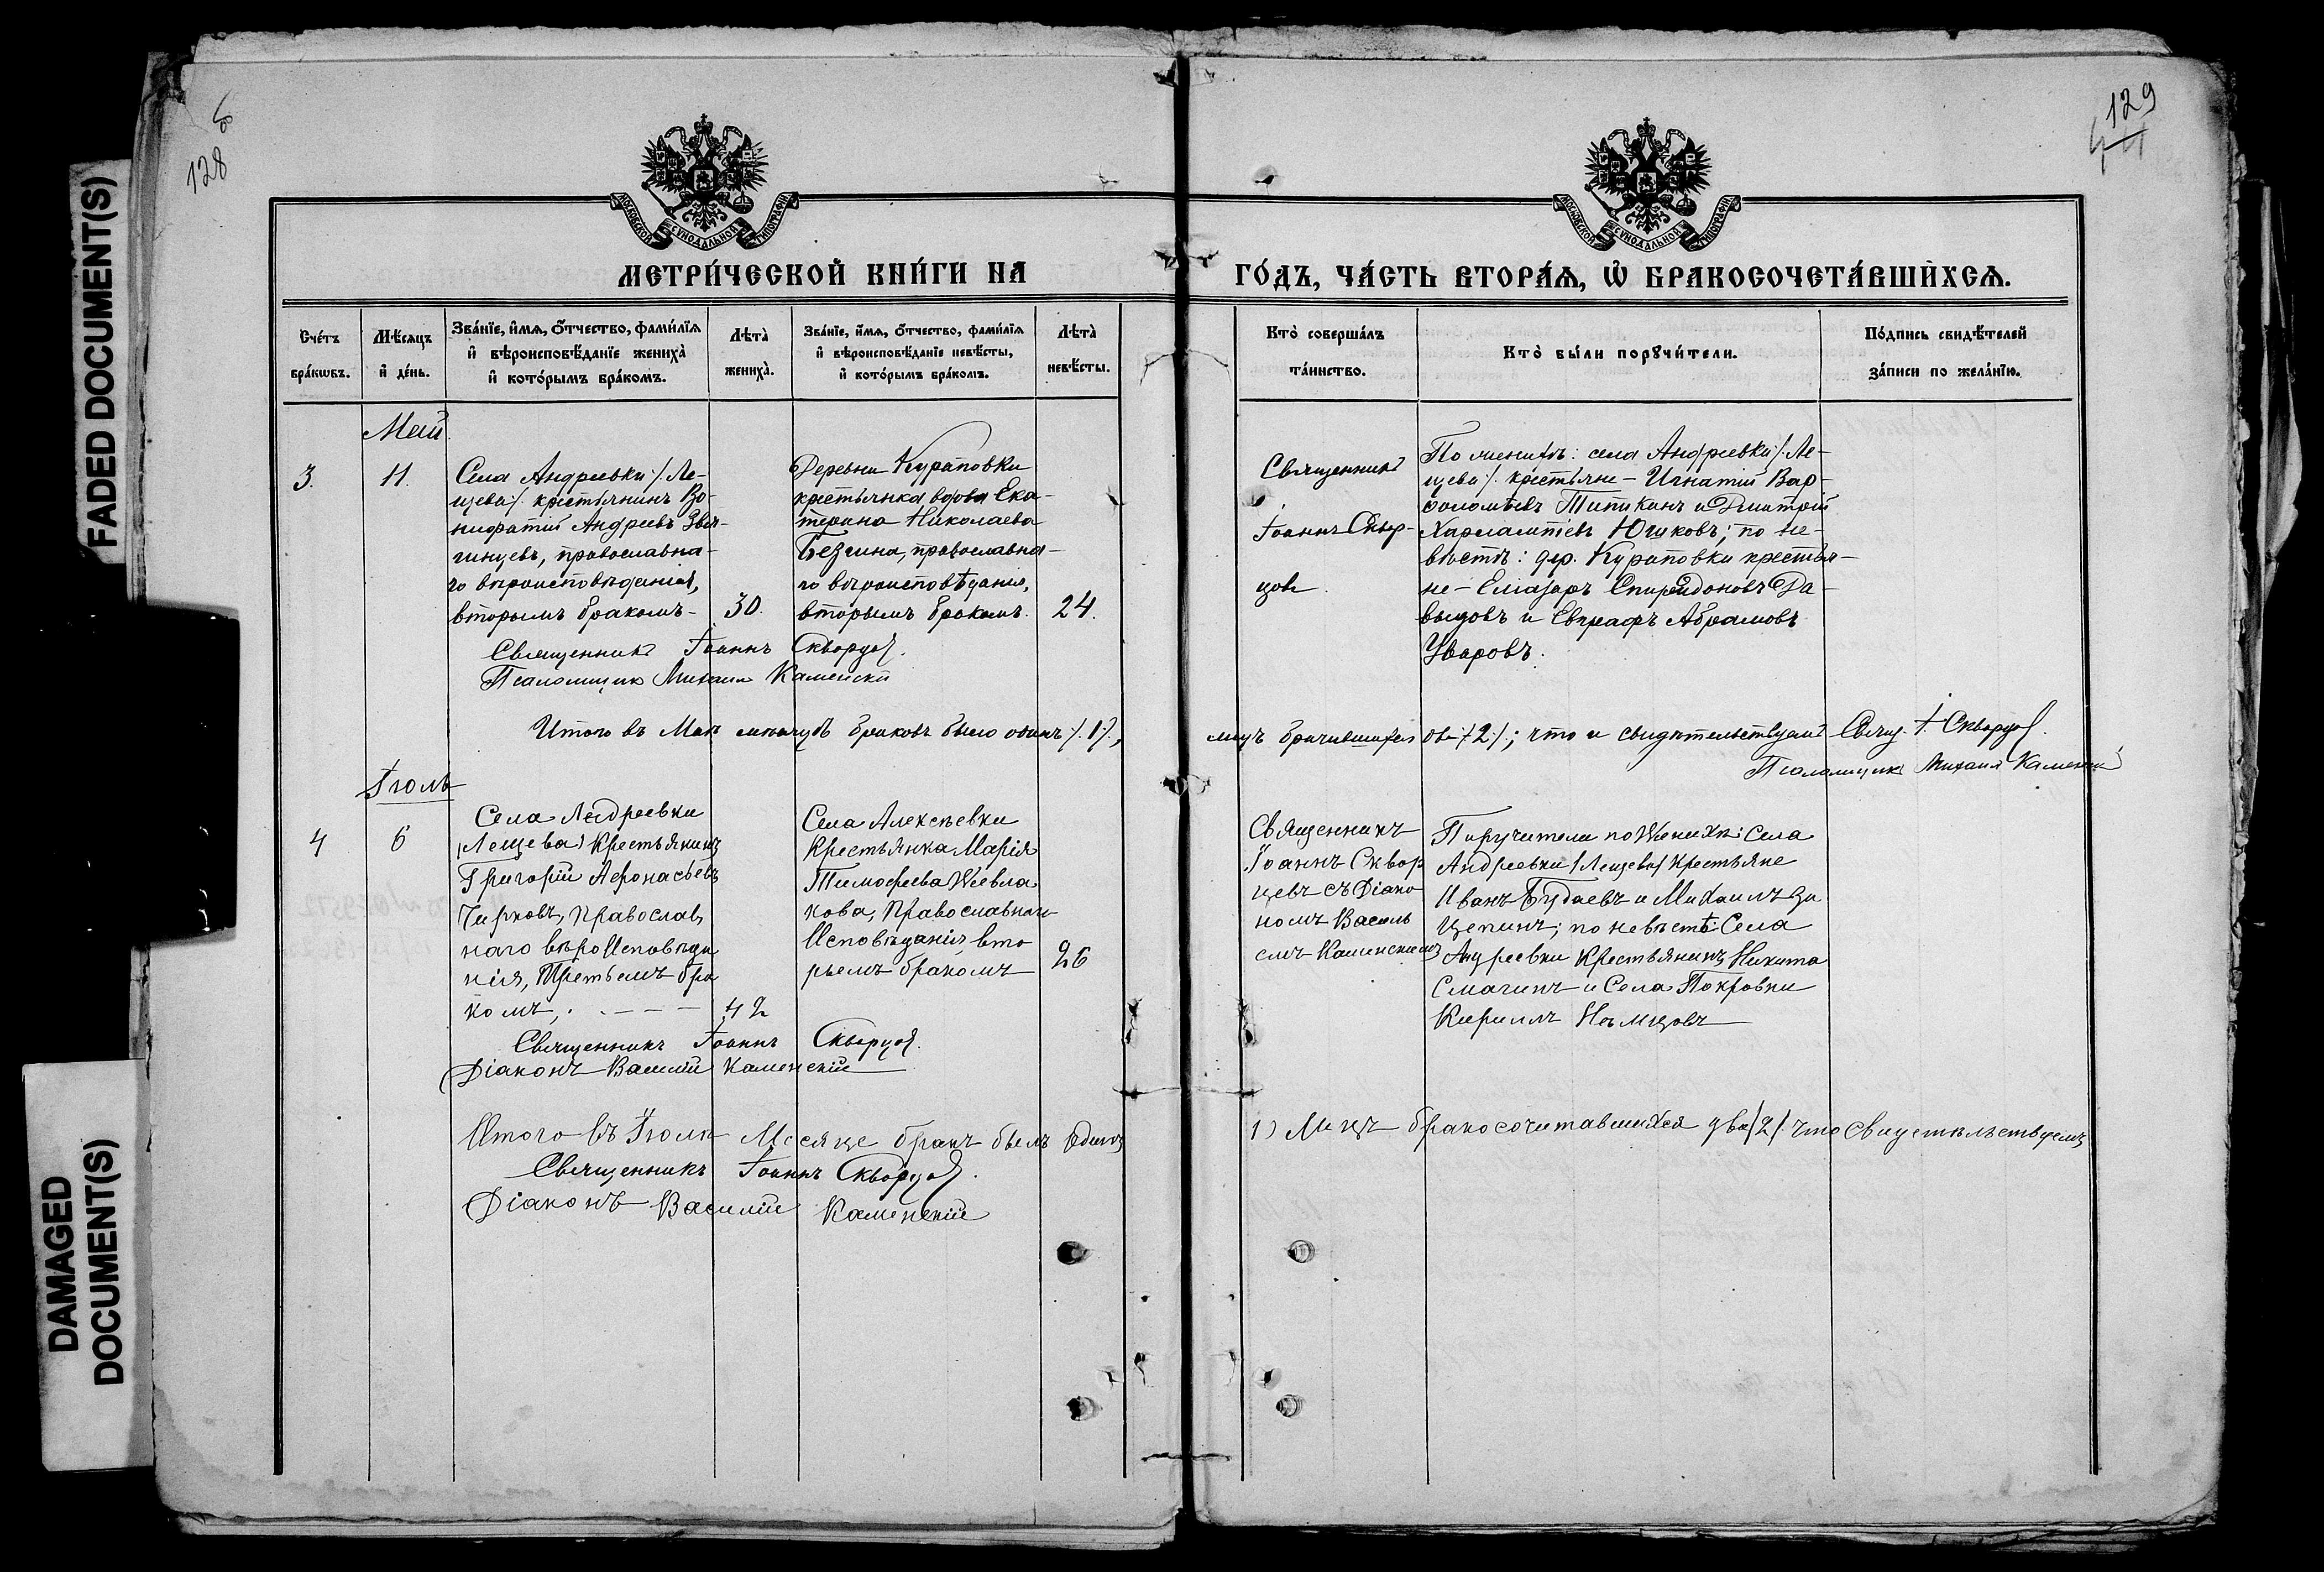 FADED DOCUMENT(S)
DAMAGED
DOCUMENT(S)
128
129
МОСКОВСКОЙ СУНОДАЛЬНОЙ ТИПОГРАФІИ
МОСКОВСКОЙ СУНОДАЛЬНОЙ ТИПОГРАФІИ
МЕТРИ́ЧЕСКОЙ КНИ́ГИ НА
ГО́ДЪ, ЧА́СТЬ ВТОРА́Я, Ѡ БРАКОСОЧЕТА́ВШИХСЯ.
Сче́тъ
бра́кѡвъ.
Мѣ́сяцъ
и де́нь.
Зва́нїе, и́мя, ѻ́тчество, фами́лїя
и вѣроисповѣ́данїе жениха̀
и кото́рымъ бра́комъ.
Лѣта̀
жениха̀.
Зва́нїе, и́мя, ѻ́тчество, фами́лїя
и вѣроисповѣ́данїе невѣ́сты,
и кото́рымъ бра́комъ.
Лѣта̀
невѣ́сты.
Кто̀ соверша́лъ
та́инство.
Кто̀ бы́ли порꙋчи́тели.
По́дпись свидѣ́телей
за́писи по жела́нїю.
Май
3.
11.
Села Андреевки /. Ле-
щева /. крестьянинъ Во-
нифатій Андреевъ Звя-
гинцевъ, православна-
го вѣроисповѣданія,
вторымъ бракомъ-
30.
Деревни Куратовки
крестьянка вдова Ека-
терина Николаева
Безгина, православна-
го вѣроисповѣданія,
вторымъ бракомъ.
24.
Священникъ
Іоаннъ Сквор-
цовъ.
По женихѣ: села Андреевки /. Ле-
щева /. крестьяне - Игнатій Вар-
ѳоломѣевъ Типикинъ и Дмитрій
Харлампіевъ Юшковъ; по не-
вѣстѣ: дер. Куратовки крестья-
не - Елиазаръ Спиридоновъ Да-
выдовъ и Евграфъ Абрамовъ
Уваровъ.
Священникъ Іоаннъ Скворцов.
Псаломщикъ Михаилъ Каменскій
Итого въ Маѣ мѣсяцѣ браковъ было одинъ /. 1 /.,
лицъ брачившихся два /. 2 /.; что и свидѣтельствуютъ Свящ. І. Скворцов.
Псаломщикъ Михаилъ Каменскій
Іюль
4
6
Села Андреевки
(Лещева) Крестьянинъ
Григорій Афонасьевъ
Чирковъ, Православ
наго вѣроИсповѣда
нія, Третьемъ бра
комъ, . . - - -
42
Села Алексѣевки
Крестьянка Марія
Тимофеева Жевла
кова, Православнаго
Исповѣданія вто
рымъ бракомъ
26
Священникъ
Іоаннъ Сквор
цевъ съ Діако
номъ Василь
емъ Каменскимъ
Поручители по Женихѣ: Села
Андреевки /Лещева/ Крестьяне
Иванъ Будаевъ и Михаилъ Ци
цепинъ; по невѣстѣ: Села
Андреевки Крестьянинъ Никита
Смагинъ и Села Покровки
Кириллъ Немцовъ
Священникъ Іоаннъ Скворцов.
Діаконъ Василій Каменскій
Итого въ Іюлѣ Месяце бракъ былъ Одинъ
1) Лицъ бракосочитавшихся два /2/ что Свидетельствуемъ
Священникъ Іоаннъ Скворцов.
Діаконъ Василій Каменскій